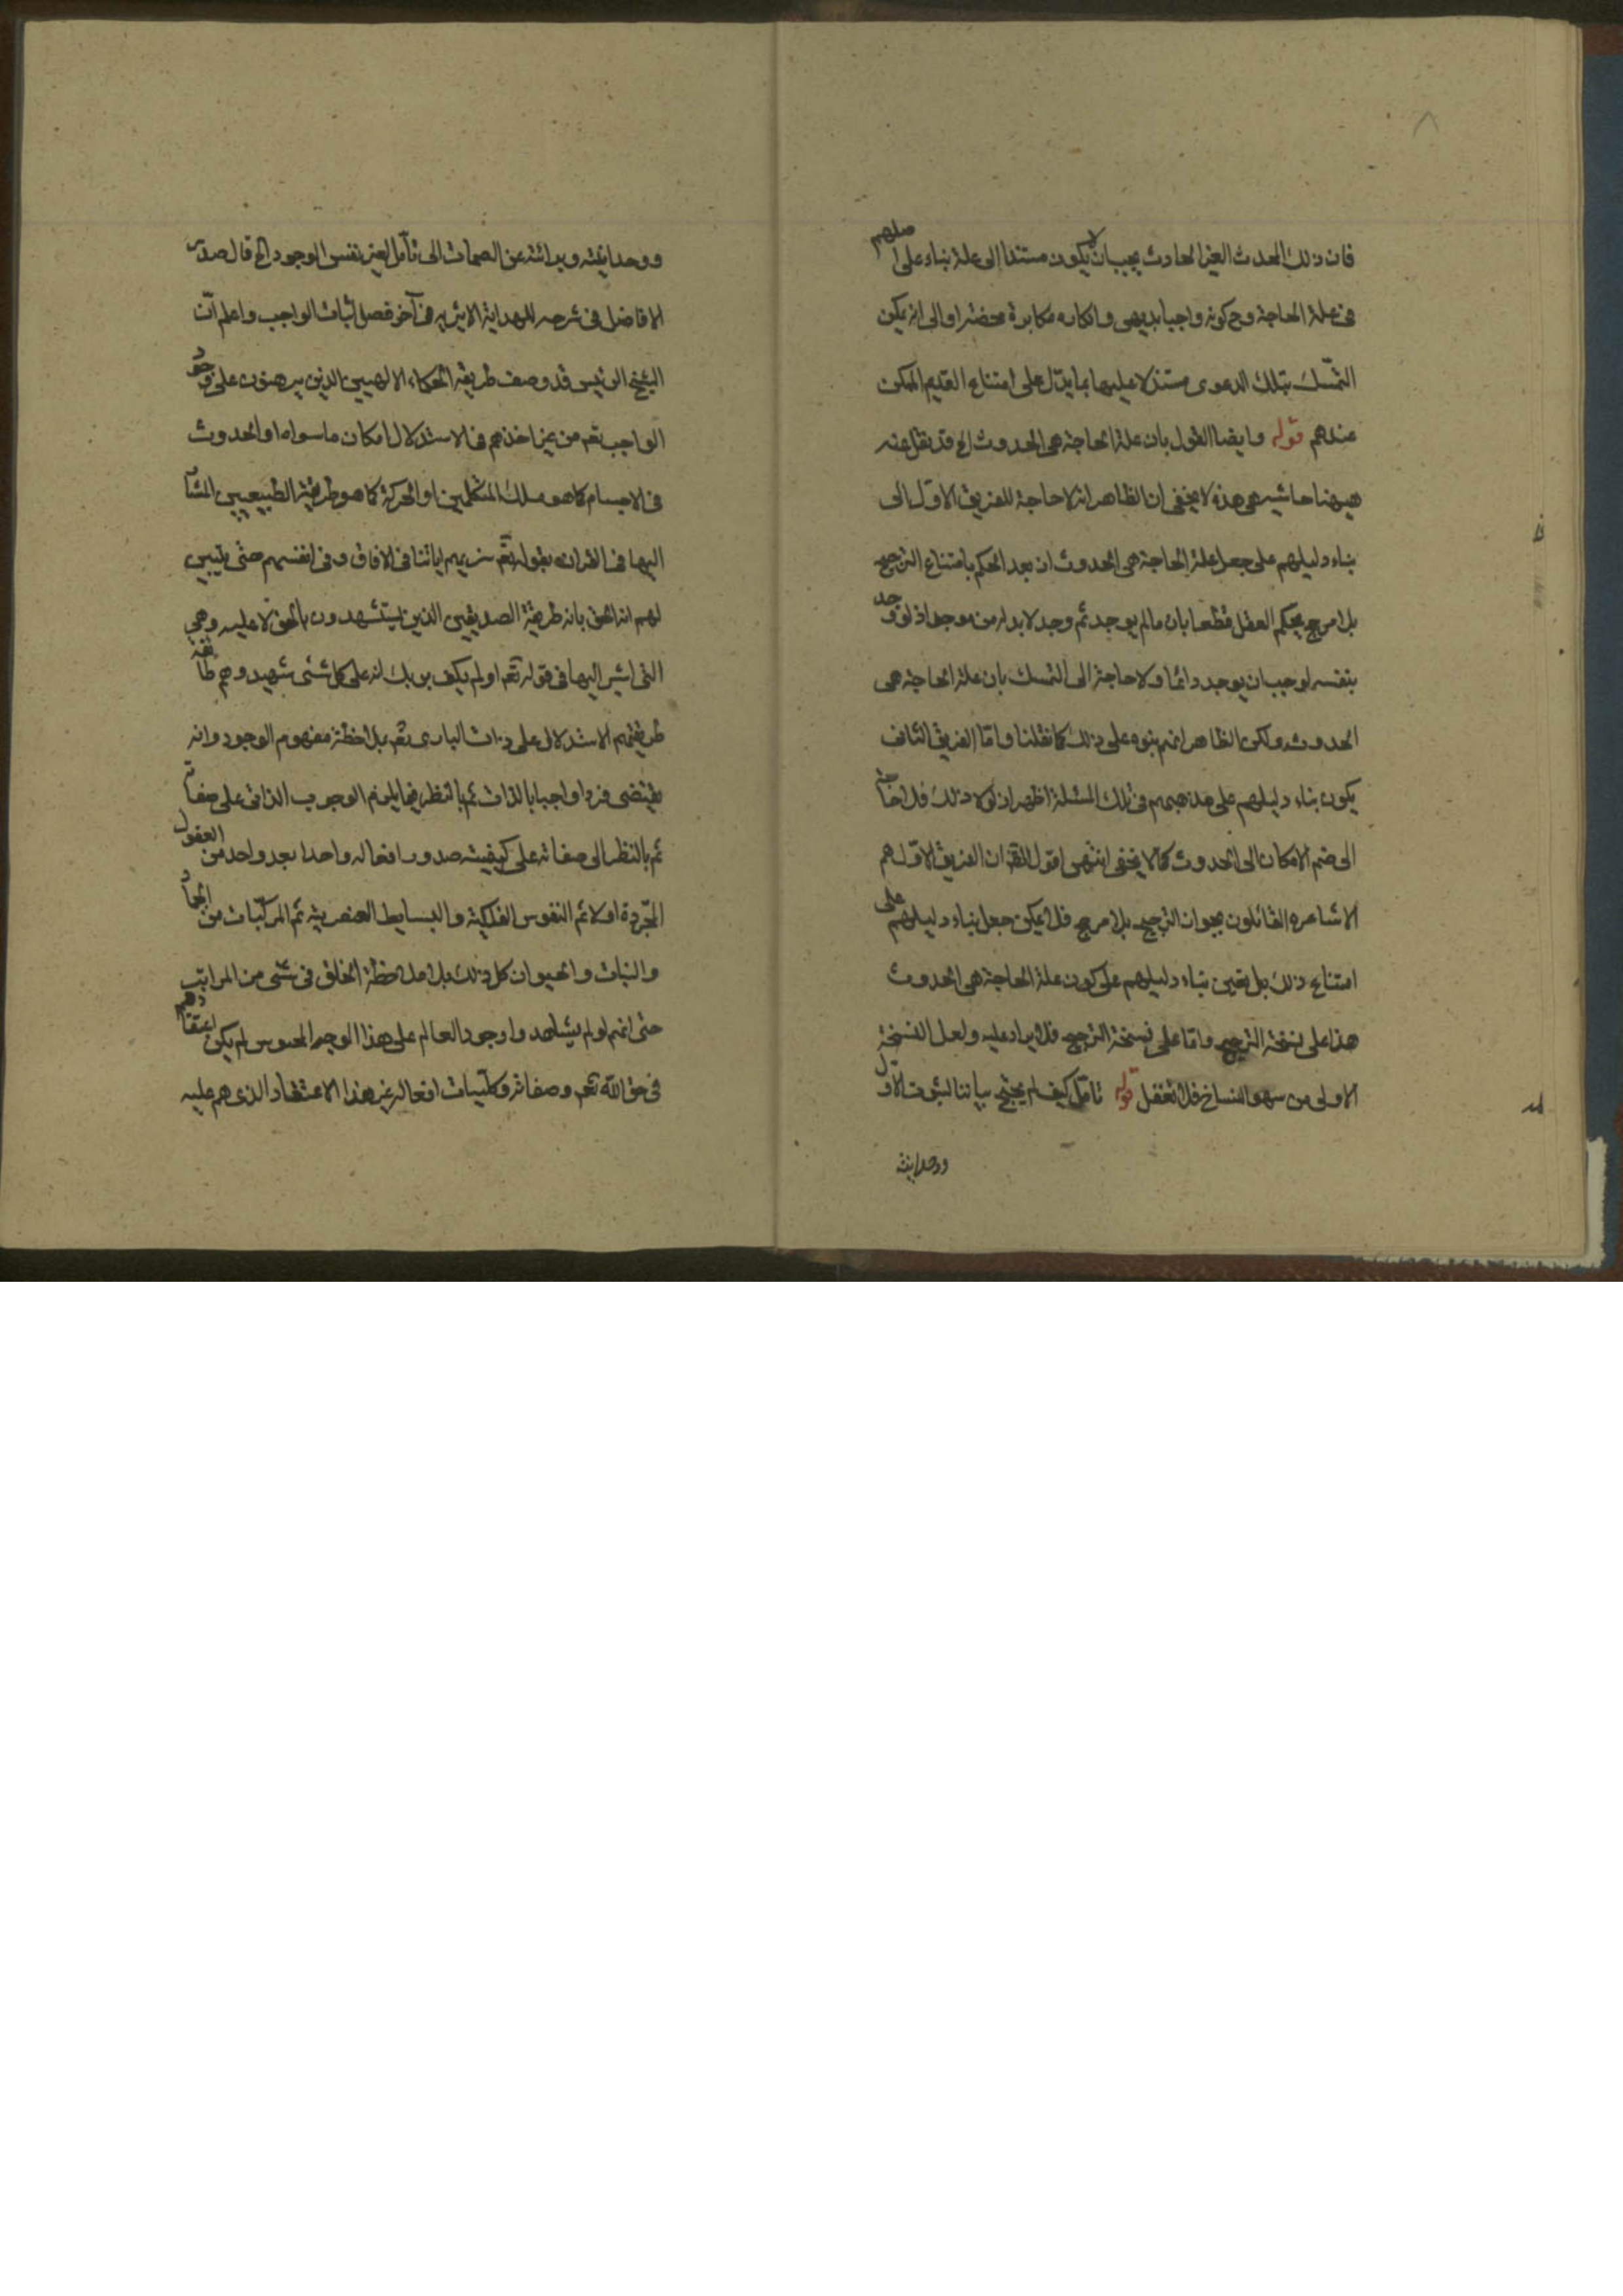 فان ذلك المحدث الغير الحادث يجب ان لا يكون مستندا الى علة بناء على اصلهم
فى علة الحاجة وح كونه واجبا بديهى وانكاره مكابرة محضة او الى انه يمكن
التمسك بتلك الدعوى مستدلا عليها بما يدل على امتناع القديم الممكن
عندهم قوله وايضا القول بان علة الحاجة هى الحدوث الخ قد نقل عنه
ههنا حاشيه هى هذه لا يخفى ان الظاهر انه لا حاجة للفريق الاول الى
بناء دليلهم على جعل علة الحاجة هى الحدوث اذ بعد الحكم بامتناع الترجيح
بلا مرجح يحكم العقل قطعا بان ما لم يوجد ثم وجد لا بد له من موجد اذ لو وجد
بنفسه لوجب ان يوجد دائما ولا حاجة الى التمسك بان علة الحاجة هى
الحدوث ولكن الظاهر انهم بنوه على ذلك كما نقلنا واما الفريق الثانى
يكون بناء دليلهم على مذهبهم فى تلك المسئلة اظهر اذ لولا ذلك فلا حاجة
الى ضم الامكان الى الحدوث كما لا يخفى انتهى اقول ان الفريق الاول هم
الاشاعره القائلون بجواز الترجيح بلا مرجح فلا يمكن جعل بناء دليلهم على
امتناع ذلك بل تعين بناء دليلهم على كون علة الحاجة هى الحدوث
هذا على نسخة الترجيح واما على نسخة الترجح فلا ايراد عليه ولعل النسخة
الاولى من سهو النساخ فلا تغفل قوله تامل كيف لم يحتج بياننا لثبوت الاول
ووحدانيته
ووحدانيته وبرائته عن الصمات الى تأمل لغير نفس الوجود الخ قال صدر
الافاضل فى شرحه للهداية الاثيريه فى آخر فصل اثبات الواجب واعلم ان
الشيخ الرئيس قد وصف طريقة الحكماء الالهيين الذين يبرهنون على وجود
الواجب تعم من غير اخذهم فى الاستدلال امكان ما سواه او الحدوث
فى الاجسام كما هو مسلك المتكلمين او الحركة كما هو طريقة الطبيعيين المشار
اليها فى القران بقوله تعم سنريهم اياتنا فى الافاق وفى انفسهم حتى يتبين
لهم انه الحق بانه طريقة الصديقين الذين يستشهدون بالحق لا عليه وهى
التى اشير اليها فى قوله تعم اولم يكف بربك انه على كل شئ شهيد وهم طائفة
طريقتهم الاستدلال على ذات البارى تعم بملاحظة مفهوم الوجود وانه
يقتضى فردا واجبا بالذات ثم بالنظر فيما يلزم الوجوب الذاتى على صفاته
ثم بالنظر الى صفاته على كيفية صدور افعاله واحدا بعد واحد من العقول
المجردة اولا ثم النفوس الفلكية والبسايط العنصرية ثم المركبات من الجماد
والنبات والحيوان كل ذلك بلا ملاحظة الخلق فى شئ من المراتب
حتى انهم لو لم يشاهدوا وجود العالم على هذا الوجه المحسوس لم يكن اعتقادهم
فى حق الله تعم وصفاته وكليات افعاله غير هذا الاعتقاد الذى هم عليه